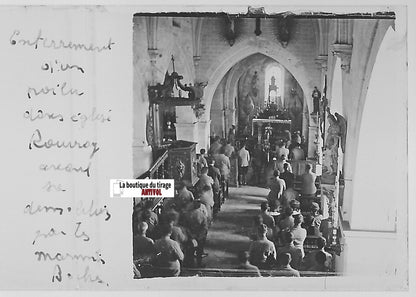 Enterrement
d'un
poilu
dans église
Rouvroy
avant
sa
démolition
par les
marmites
Boches
La boutique du tirage
ANTIVOL